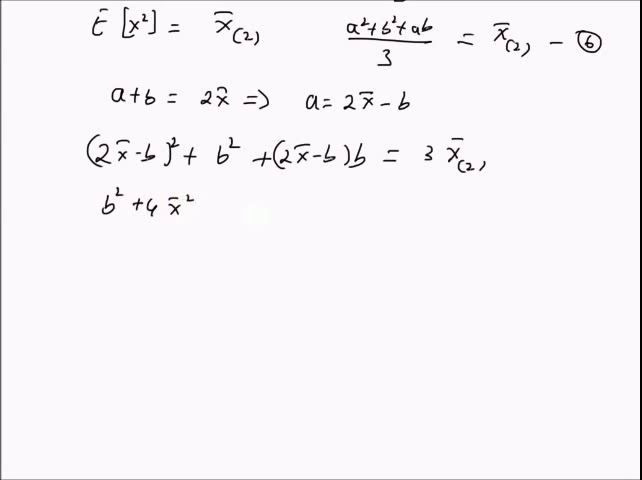 E [x²] = x̄₍₂₎   (a²+b²+ab)/3 = x̄₍₂₎ – ⑥
a+b = 2x̄ => a = 2x̄ – b
(2x̄-b)² + b² + (2x̄-b)b = 3 x̄₍₂,
b² + 4 x̄²